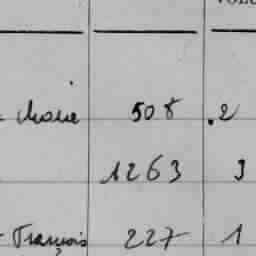 Marie 508 .2
1263 3
François 227 1